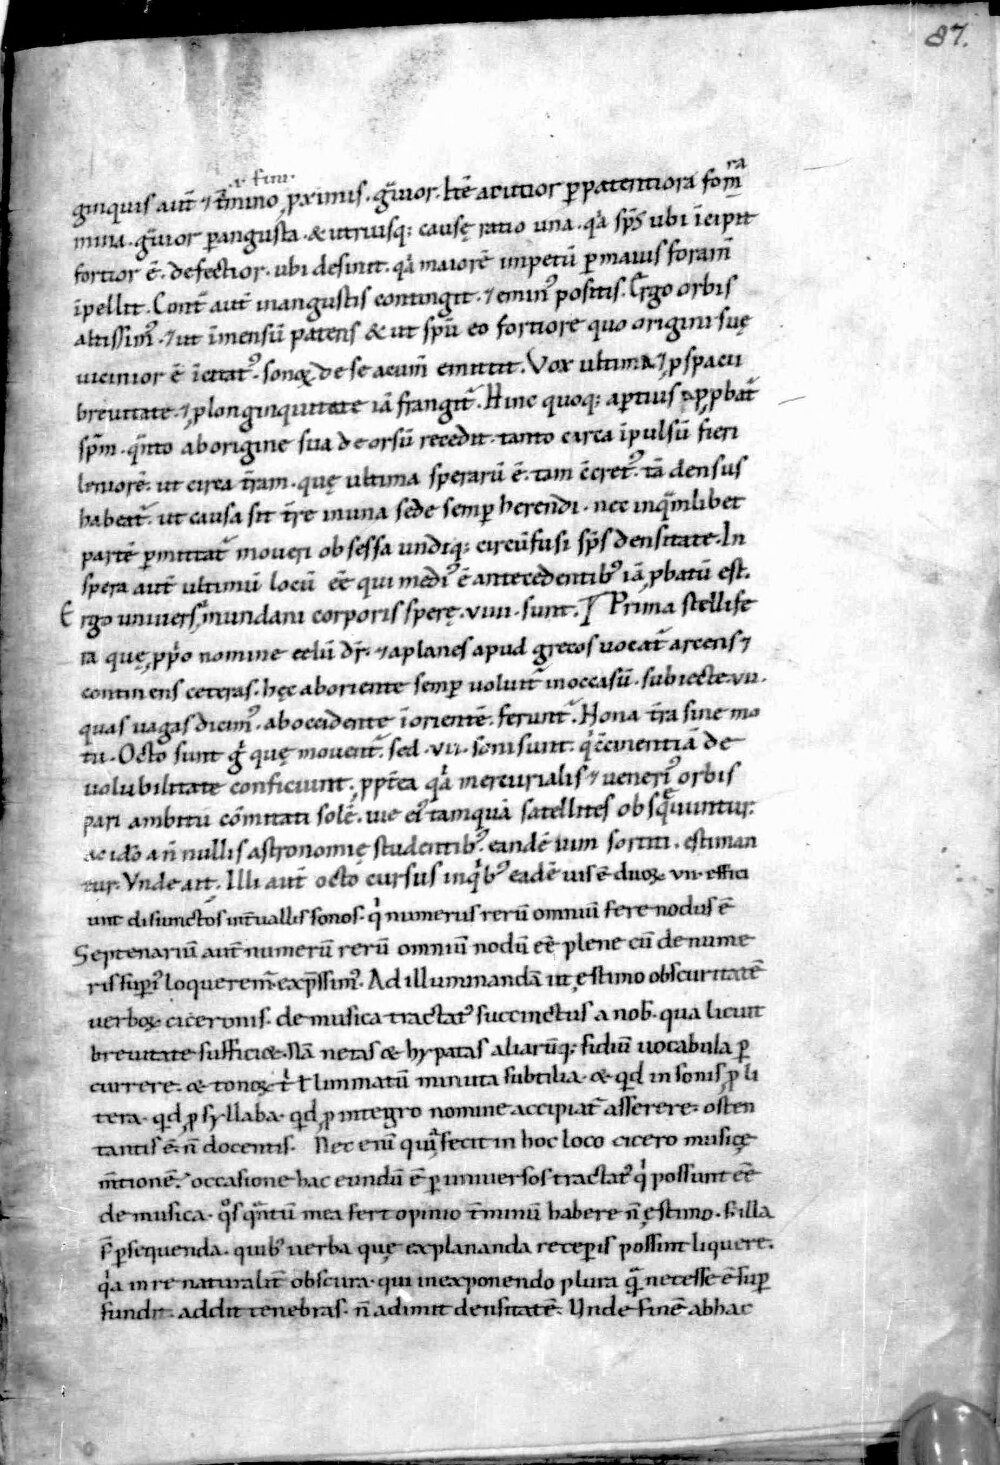 87.
.i. fini.
ginquis aut̄ ⁊ t̄mino ꝓximus. g̃uior. Itē acutior ꝑ patentiora foram̄
mina. g̃uior ꝑ angusta. & utriusq; causę ratio una. q̃a sp̄s ubi īcipit
fortior ē. defectior. ubi desinit. q̃a maiorē impetū ꝑ maius foram̄
īpellit. Cont̃ aut̄ in angustis contingit. ⁊ eminꝰ positis. Ergo orbis
altissimꝰ. ⁊ ut īmensū patens & ut sp̄u eo fortiore quo origini suę
uicinior ē īcitatꝰ. sonoꝝ de se acum̄ emittit. Vox ultima ⁊ ꝓ spacii
breuitate. ⁊ ꝓ longinquitate iā frangit̃. Hinc quoq; aꝑtius ꝓbat̃
sp̄m. q̃nto ab origine sua deorsū recedit. tanto circa īpulsū fieri
leniorē. ut circa t̄ram. quę ultima sperarū ē. tam c̄cretꝰ. tā densus
habeat̃. ut causa sit t̄re in una sede semꝑ herendi. nec in q̃mlibet
partē ꝑmittat̃ moueri obsessa undiq; circūfusi sp̄s densitate. In
spera aut̄ ultimū locū eē qui mediꝰ ē antecedentibꝰ iā ꝓbatū est.
Ergo uniuersi mundani corporis sperę. viiii. sunt. Prima stellife
ra quę ꝓp̃o nomine celū dr̄. ⁊ aplanes apud grecos uocat̃ arcens ⁊
continens ceteras. hęc ab oriente semꝑ uoluit̃ in occasū. subiecte. vii.
quas uagas dicimꝰ. ab occidente ī orientē. ferunt̃. Nona t̄ra sine mo
tu. Octo sunt g̊ quę mouent̃. sed. vii. soni sunt. q̇ c̄cinentiā de
uolubilitate conficiunt. ꝓpt̄ea q̃a mercurialis ⁊ ueneriꝰ orbis
pari ambitu cōmitati solē. uie eiꝰ tamquā satellites obsequuntur.
ac ido a ñnullis astronomię studentibꝰ. eandē uim sortiti. estiman
tur. Vnde ait. Illi aut̄ octo cursus in q̇bꝰ eadē uis ē duoꝝ vii. effici
unt disiunctos int̄uallis sonos. q̇ numerus rerū omniū fere nodus ē
Septenariū aut̄ numerū rerū omniū nodū eē plene cū de nume
ris supiꝰ loqueremꝰ. exp̄ssimꝰ. Ad illuminandā ut ęstimo obscuritatē
uerboꝝ ciceronis. de musica tractatꝰ succinctus a nob̄. qua licuit
breuitate sufficiet. Nā netas & hypatas aliarūq; fidiū uocabula ꝑ
currere. & tonoꝝ ł limmatū minuta subtilia. & qd̄ in sonis ꝓ li
tera. qd̄ ꝓ syllaba. qd̄ ꝓ integro nomine accipiat̃ asserere. osten
tantis ē. ñ docentis. Nec eni̇ qui̇ fecit in hoc loco cicero musicę
m̄tionē. occasione hac eundū ē ꝑ uniuersos tractatꝰ q̇ possunt eē
de musica. qͦs q̃ntū mea fert opinio t̄minū habere ñ ęstimo. S; illa
s̄ ꝑsequenda. quibꝰ uerba quę explananda receꝑis possint liquere.
q̃a in re naturalit̃ obscura. qui in exponendo plura q̃ necesse ē suꝑ
fundit. addit tenebras. ñ adimit densitatē. Unde finē ab hac